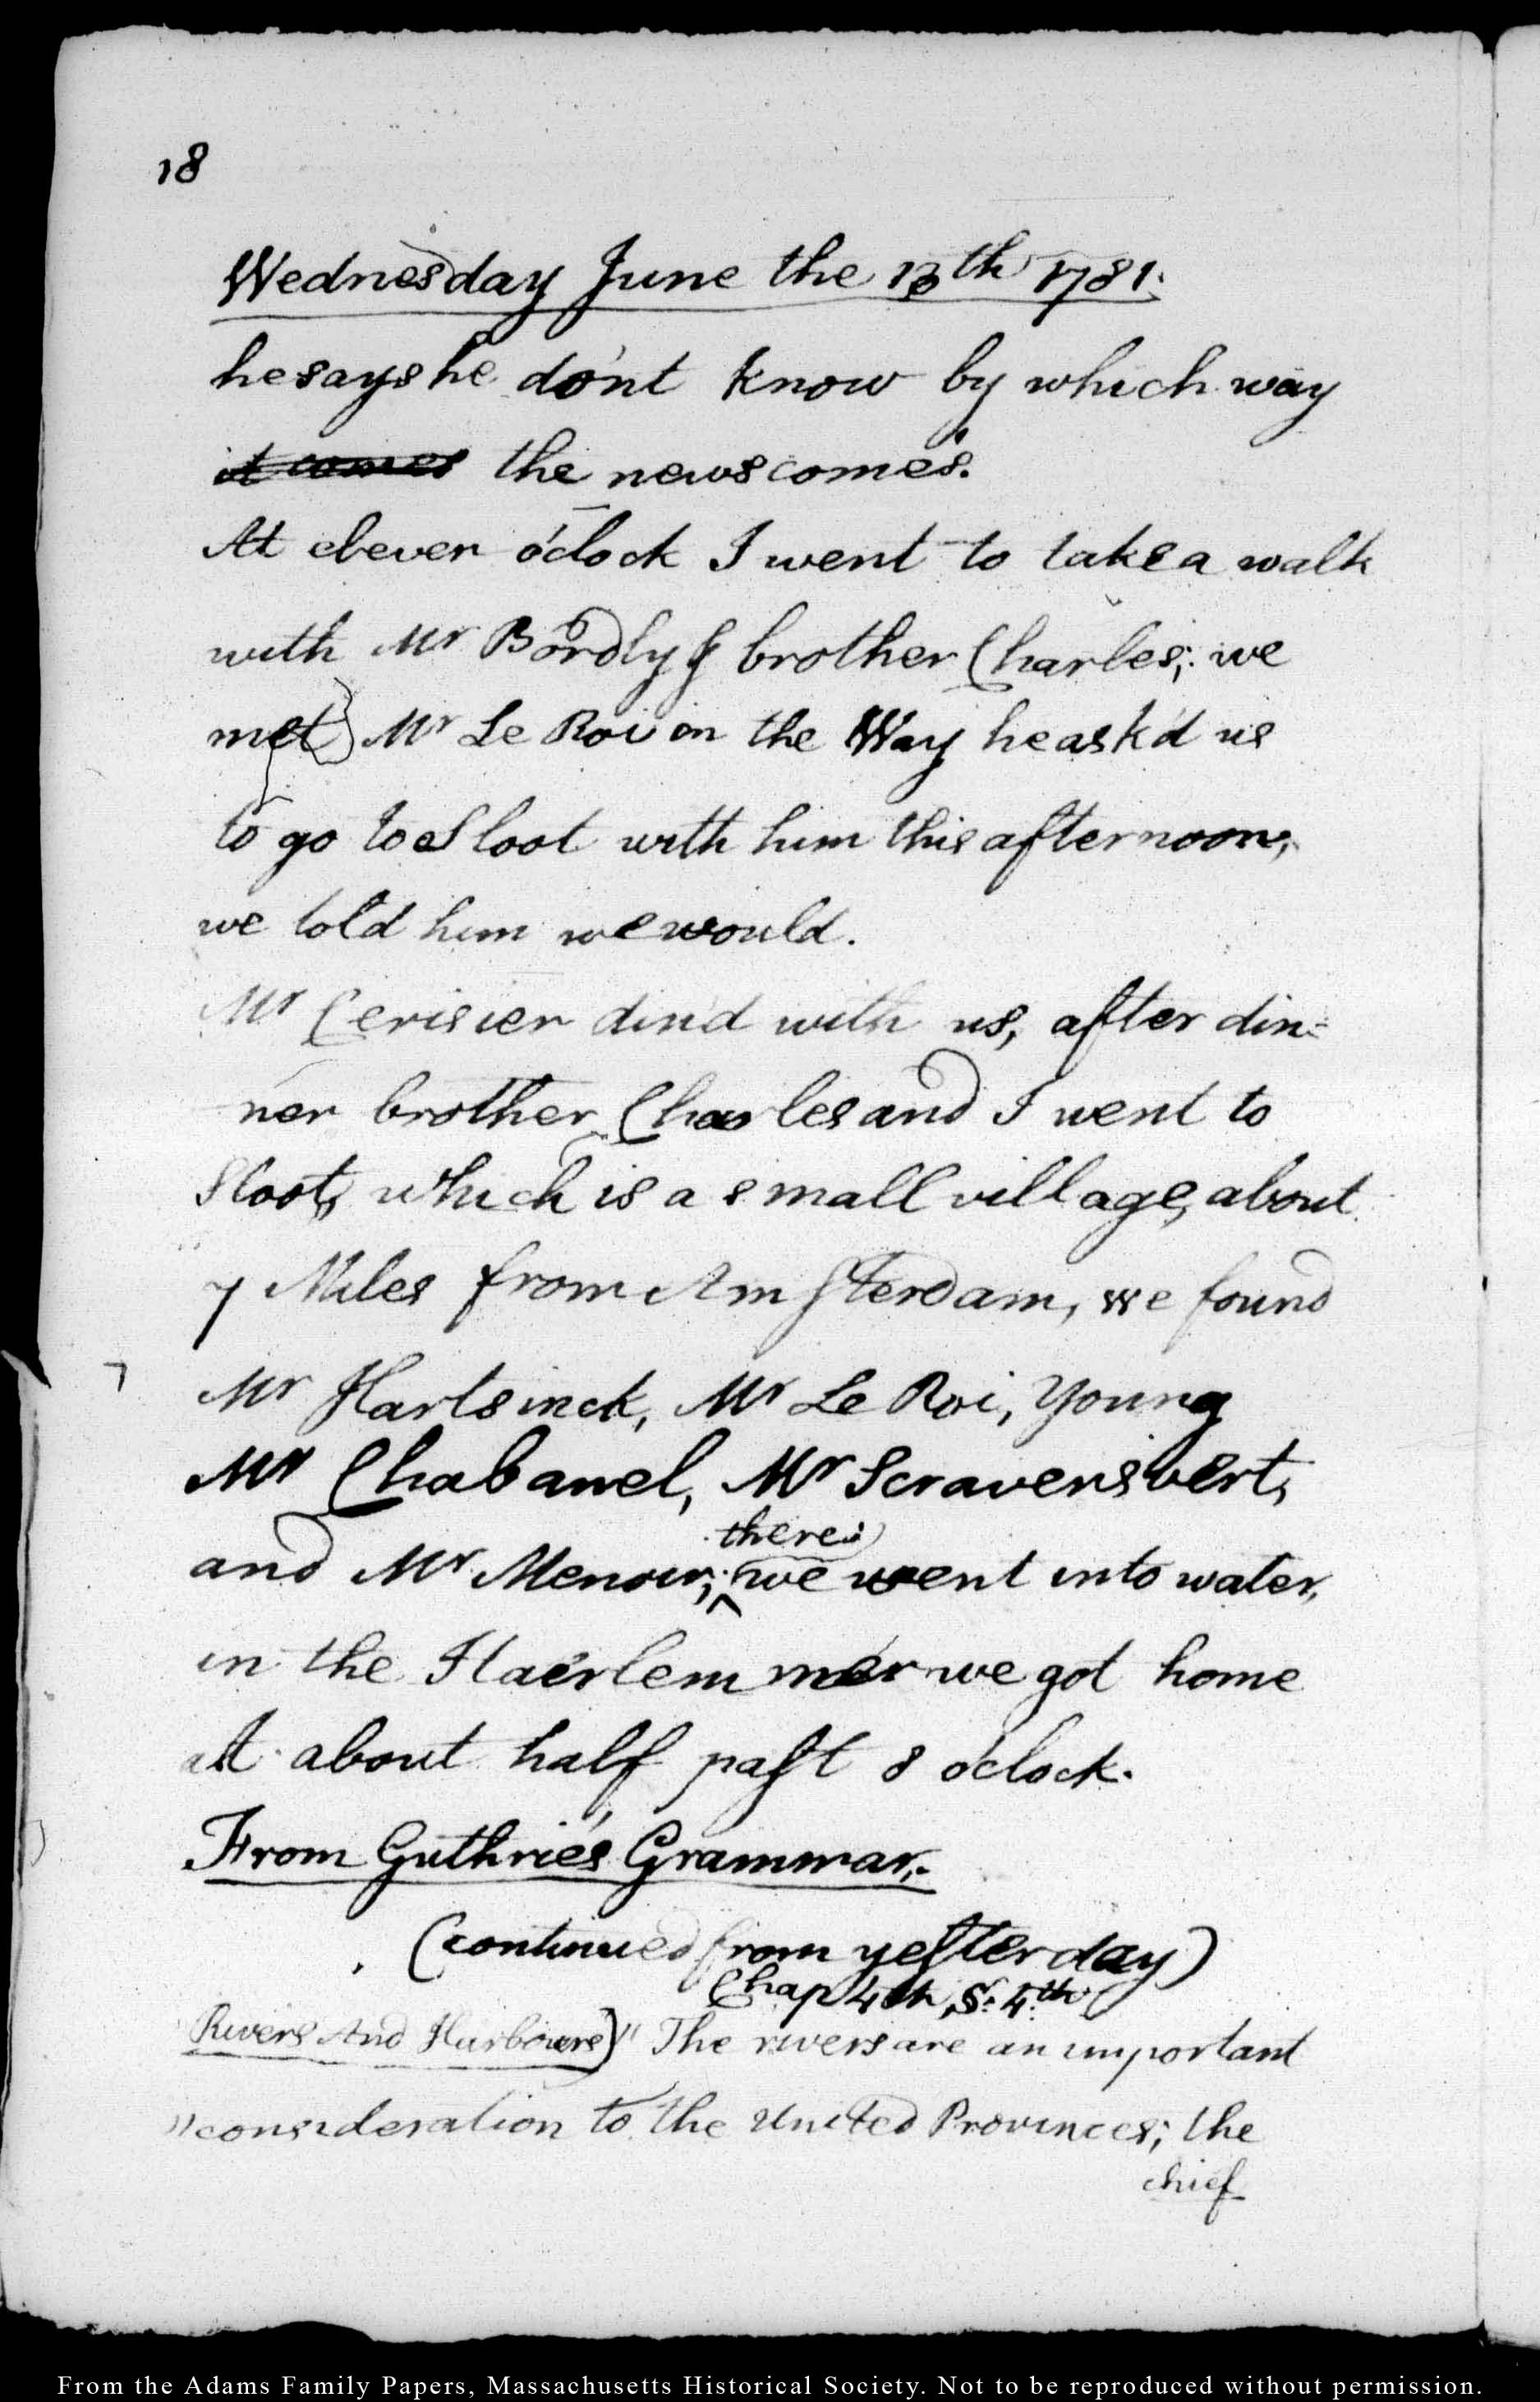 18
Wednesday June the 13th 1781.
he says he do'nt know by which way
it comes the news comes.
At eleven o'clock I went to take a walk
with Mr Bordly & brother Charles; we
met Mr Le Roi on the Way he ask'd us
to go to Sloot with him this afternoon,
we told him we would.
Mr Cerisier din'd with us, after din=
ner brother Charles and I went to
Sloot, which is a small village, about
7 Miles from Amsterdam, we found
Mr Hartsinck, Mr Le Roi, Young
Mr Chabanel, Mr Scravensvert,
there
and Mr Menoir; we went into water,
in the Haerlem mer we got home
At about half past 8 o'clock.
From Guthrie's Grammar.
(continued from yesterday)
Chap 4th, S. 4th
Rivers And Harbours) " The rivers are an important
"consideration to the United Provinces; the
chief
From the Adams Family Papers, Massachusetts Historical Society. Not to be reproduced without permission.